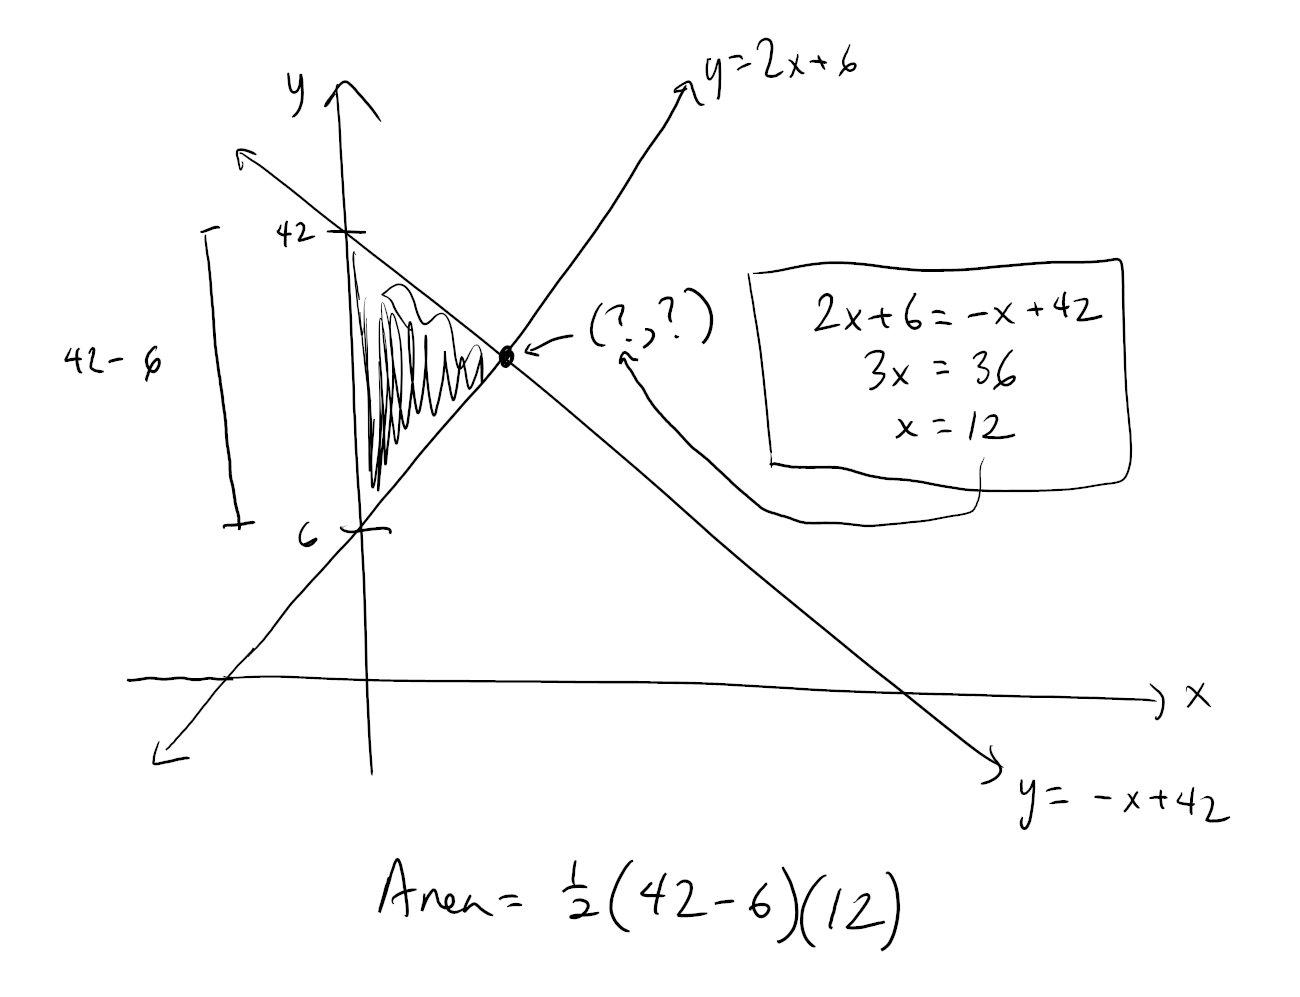 y = 2x + 6
y
42
42 - 6
(?, ?)
2x + 6 = -x + 42
3x = 36
x = 12
6
x
y = -x + 42
Area = 1/2 (42 - 6)(12)